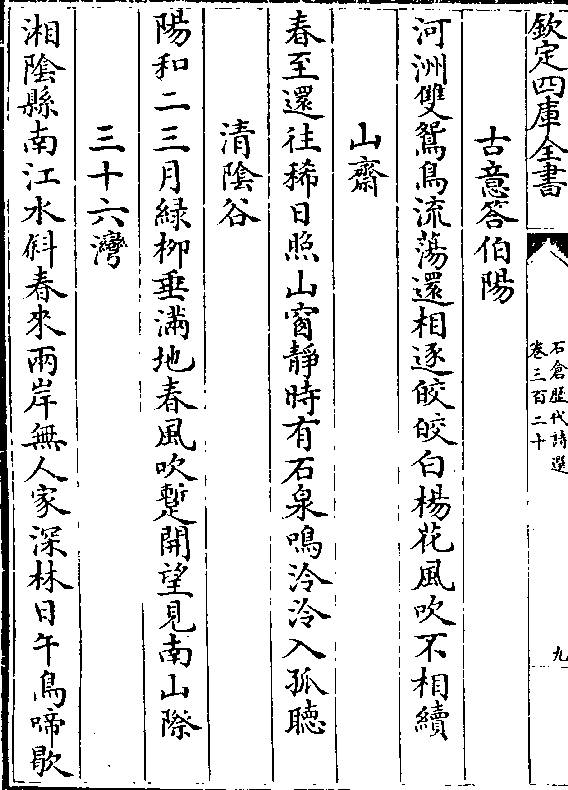 欽定四庫全書
石倉歷代詩選
卷三百二十
九
古意答伯陽
河洲雙鴛鳥流蕩還相逐皎皎白楊花風吹不相續
山齋
春至還往稀日照山窗靜時有石泉鳴泠泠入孤聽
清陰谷
陽和二三月緑柳垂滿地春風吹蹔開望見南山際
三十六灣
湘陰縣南江水斜春來兩岸無人家深林日午鳥啼歇